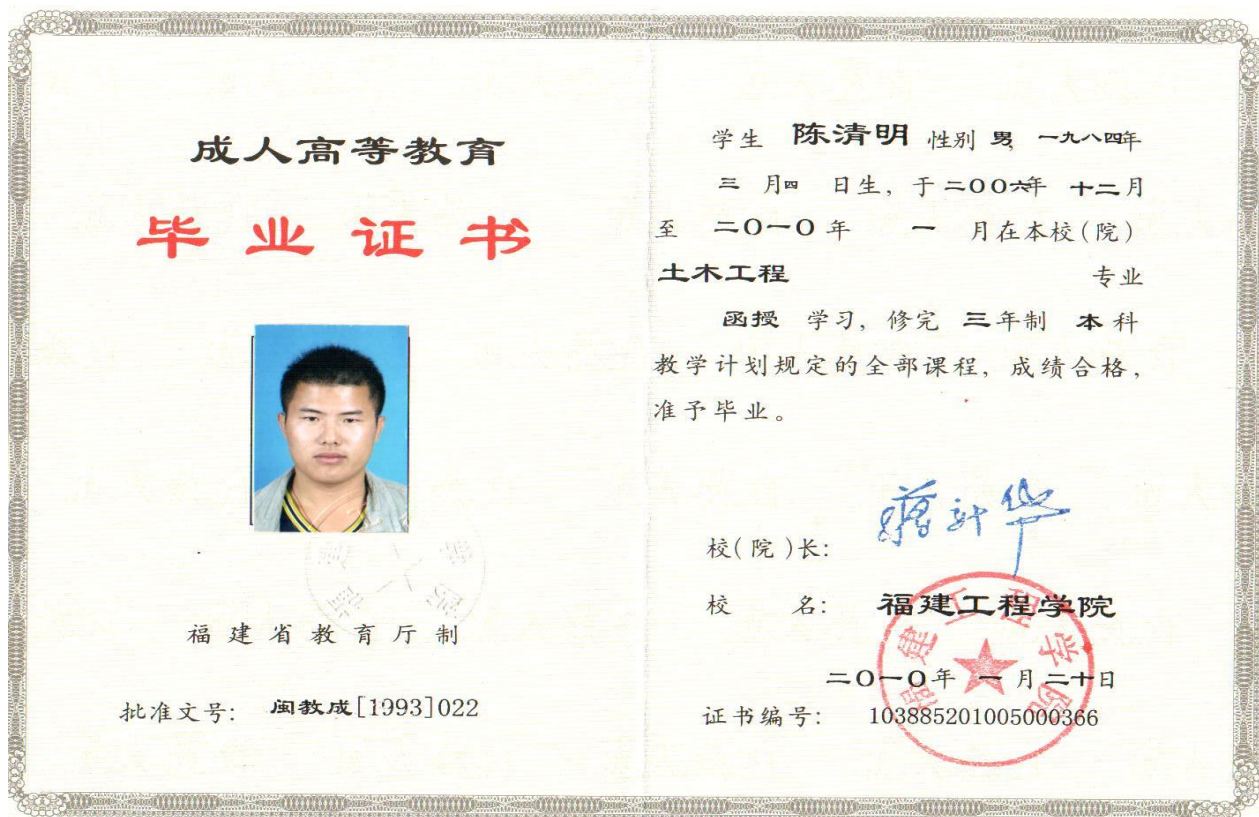 成人高等教育
毕业证书
福建省教育厅制
批准文号: 闽教成[1993]022
学生 陈清明 性别 男, 一九八四年
三 月四 日生, 于二〇〇六年 十二月
至 二〇一〇年 一 月在本校(院)
土木工程 专业
函授 学习, 修完 三年制 本科
教学计划规定的全部课程, 成绩合格,
准予毕业。
校(院)长:
校 名: 福建工程学院
福建工程学院
二〇一〇年 一 月二十日
证书编号: 103885201005000366